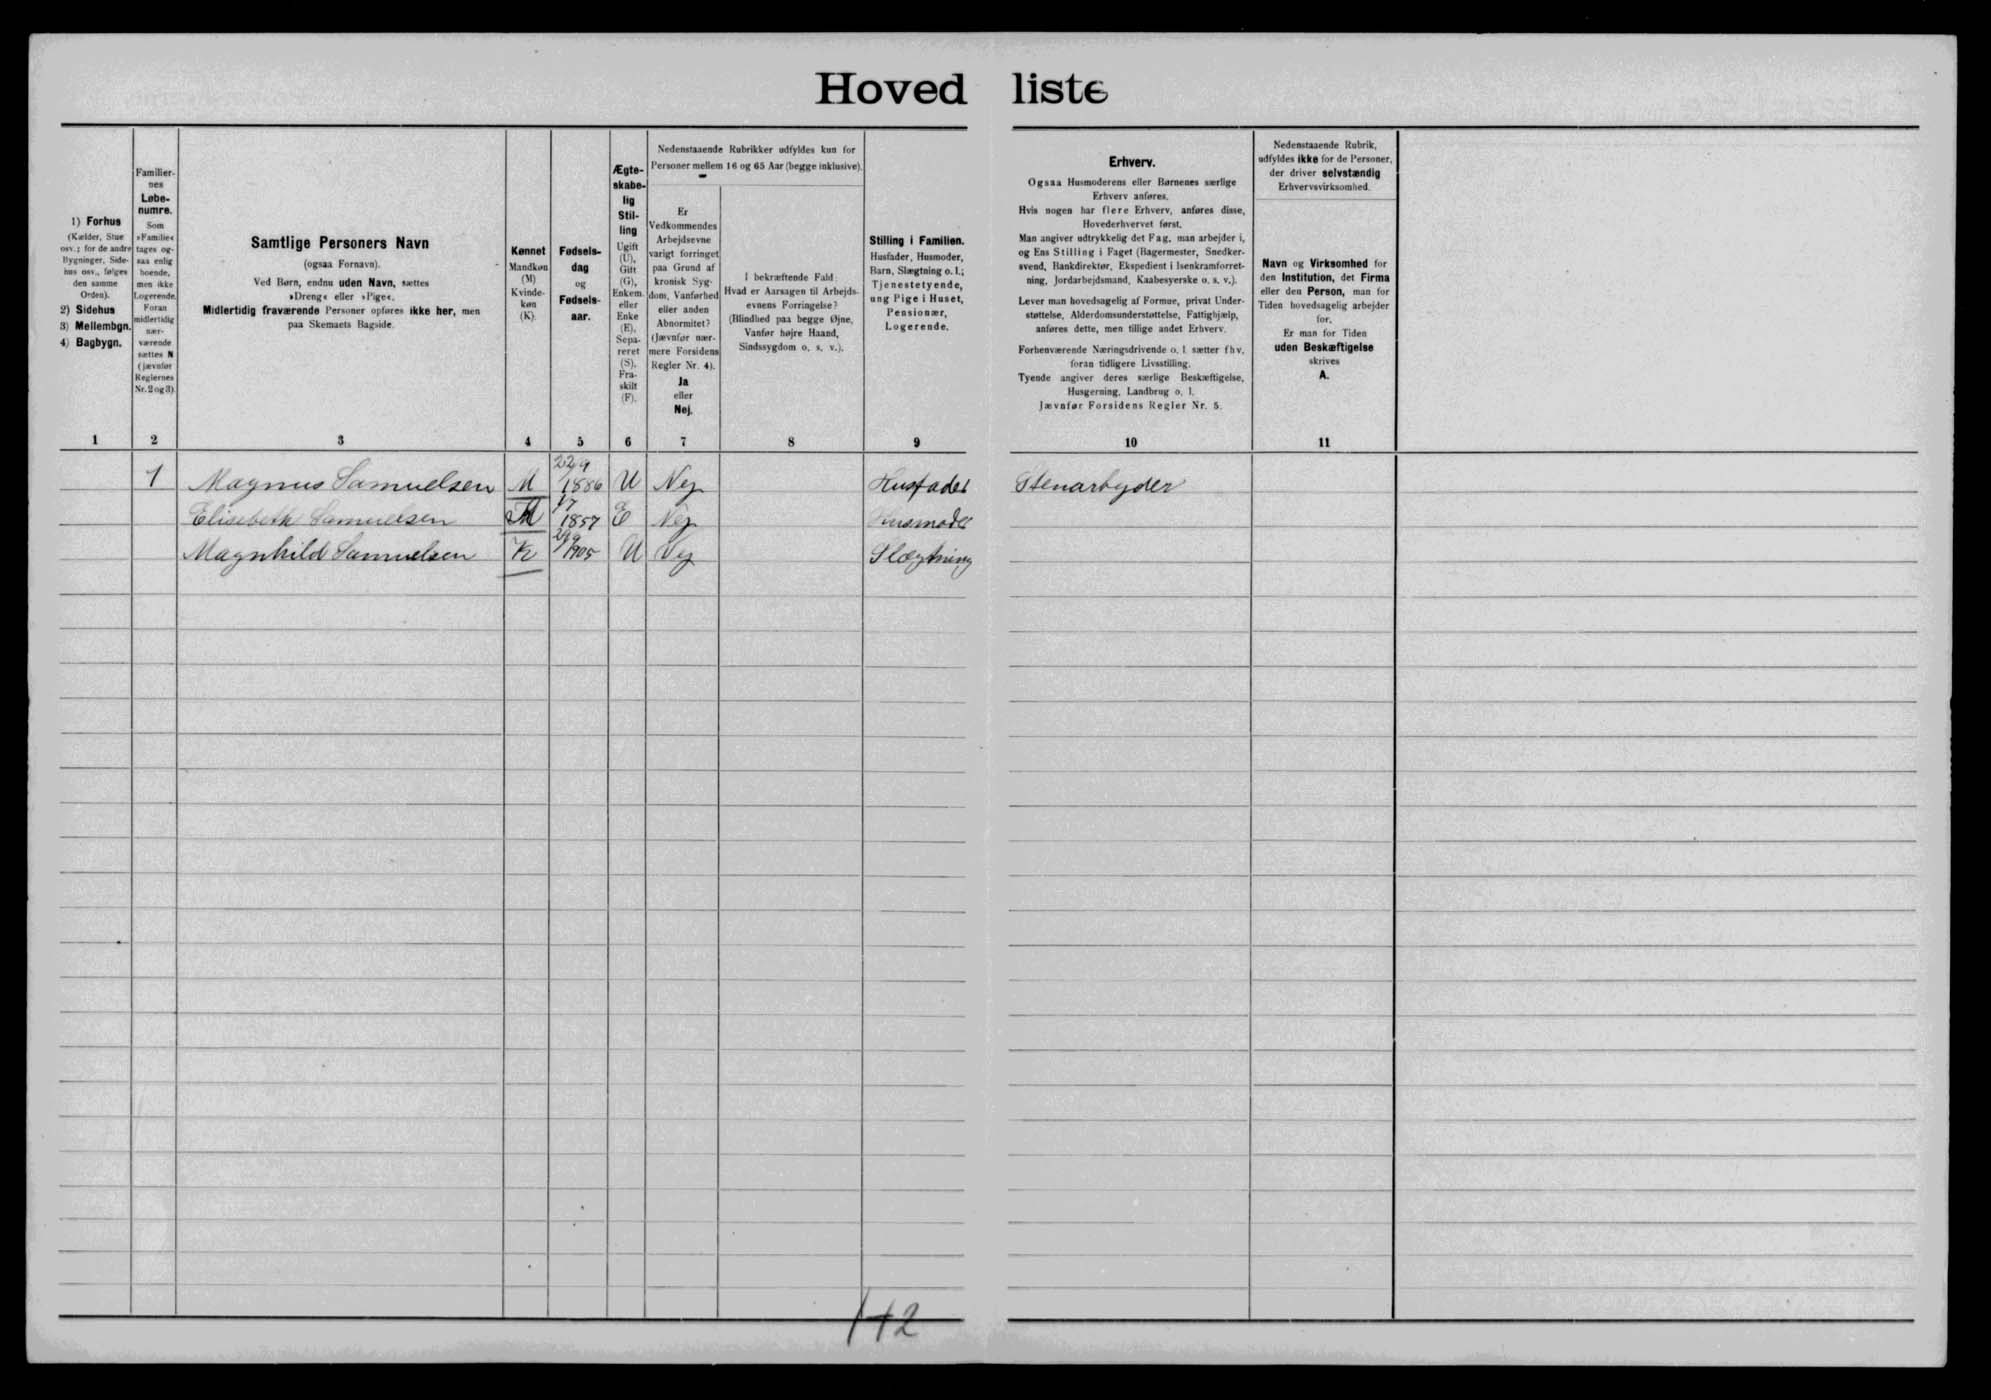 Hovedliste
1) Forhus
(Kælder, Stue
osv.; for de andre
Bygninger, Side-
hus osv., følges
den samme
Orden).
2) Sidehus
3) Mellembgn.
4) Bagbygn.
Familier-
nes
Løbe-
numre.
Som
»Familie«
tages og-
saa enlig
boende,
men ikke
Logerende.
Foran
midlertidig
nær-
værende
sættes N
(jævnfør
Reglernes
Nr. 2 og 3).
Samtlige Personers Navn
(ogsaa Fornavn).
Ved Børn, endnu uden Navn, sættes
»Dreng« eller »Pige«.
Midlertidig fraværende Personer opføres ikke her, men
paa Skemaets Bagside.
Kønnet
Mandkøn
(M)
Kvinde-
køn
(K).
Fødsels-
dag
og
Fødsels-
aar.
Ægte-
skabe-
lig
Stil-
ling
Ugift
(U),
Gift
(G),
Enkem.
eller
Enke
(E),
Sepa-
reret
(S),
Fra-
skilt
(F).
Nedenstaaende Rubrikker udfyldes kun for
Personer mellem 16 og 65 Aar (begge inklusive).
Er
Vedkommendes
Arbejdsevne
varigt forringet
paa Grund af
kronisk Syg-
dom, Vanførhed
eller anden
Abnormitet?
(Jævnfør nær-
mere Forsidens
Regler Nr. 4).
Ja
eller
Nej.
I bekræftende Fald:
Hvad er Aarsagen til Arbejds-
evnens Forringelse?
(Blindhed paa begge Øjne,
Vanfør højre Haand,
Sindssygdom o. s. v.).
Stilling i Familien.
Husfader, Husmoder,
Barn, Slægtning o. l.;
Tjenestetyende,
ung Pige i Huset,
Pensionær,
Logerende.
Erhverv.
Ogsaa Husmoderens eller Børnenes særlige
Erhverv anføres.
Hvis nogen har flere Erhverv, anføres disse,
Hovederhvervet først.
Man angiver udtrykkelig det Fag, man arbejder i,
og Ens Stilling i Faget (Bagermester, Snedker-
svend, Bankdirektør, Ekspedient i Isenkramforret-
ning, Jordarbejdsmand, Kaabesyerske o. s. v.).
Lever man hovedsagelig af Formue, privat Under-
støttelse, Alderdomsunderstøttelse, Fattighjælp,
anføres dette, men tillige andet Erhverv.
Forhenværende Næringsdrivende o. l. sætter fhv.
foran tidligere Livsstilling.
Tyende angiver deres særlige Beskæftigelse,
Husgerning, Landbrug o. l.
Jævnfør Forsidens Regler Nr. 5.
Nedenstaaende Rubrik,
udfyldes ikke for de Personer,
der driver selvstændig
Erhvervsvirksomhed.
Navn og Virksomhed for
den Institution, det Firma
eller den Person, man for
Tiden hovedsagelig arbejder
for.
Er man for Tiden
uden Beskæftigelse
skrives
A.
1 2 3 4 5 6 7 8 9 10 11
1 Magnus Samuelsen M 22/9 1886 U Nej Husfader Stenarbyder
Elisebeth Samuelsen 1/7 1857 E Nej Husmoder
Magnhild Samuelsen K 29/9 1905 U Nej Slægtning
142